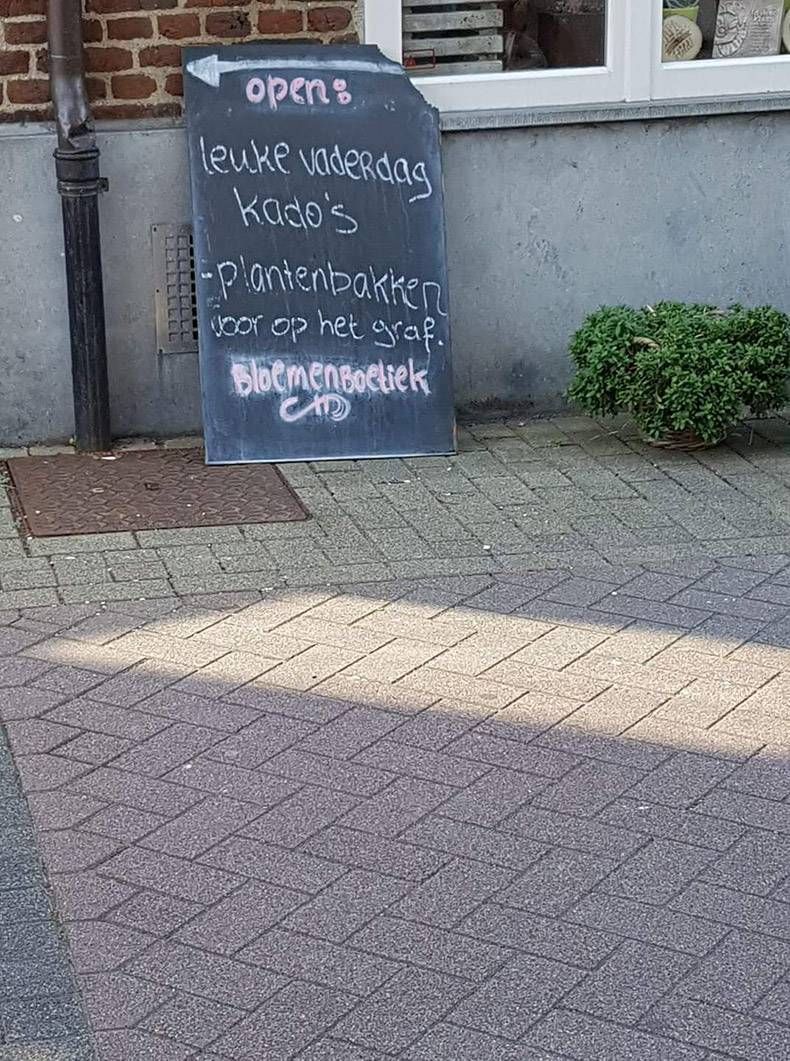 open:
leuke vaderdag
kado's
-plantenbakken
voor op het graf.
Bloemenboetiek